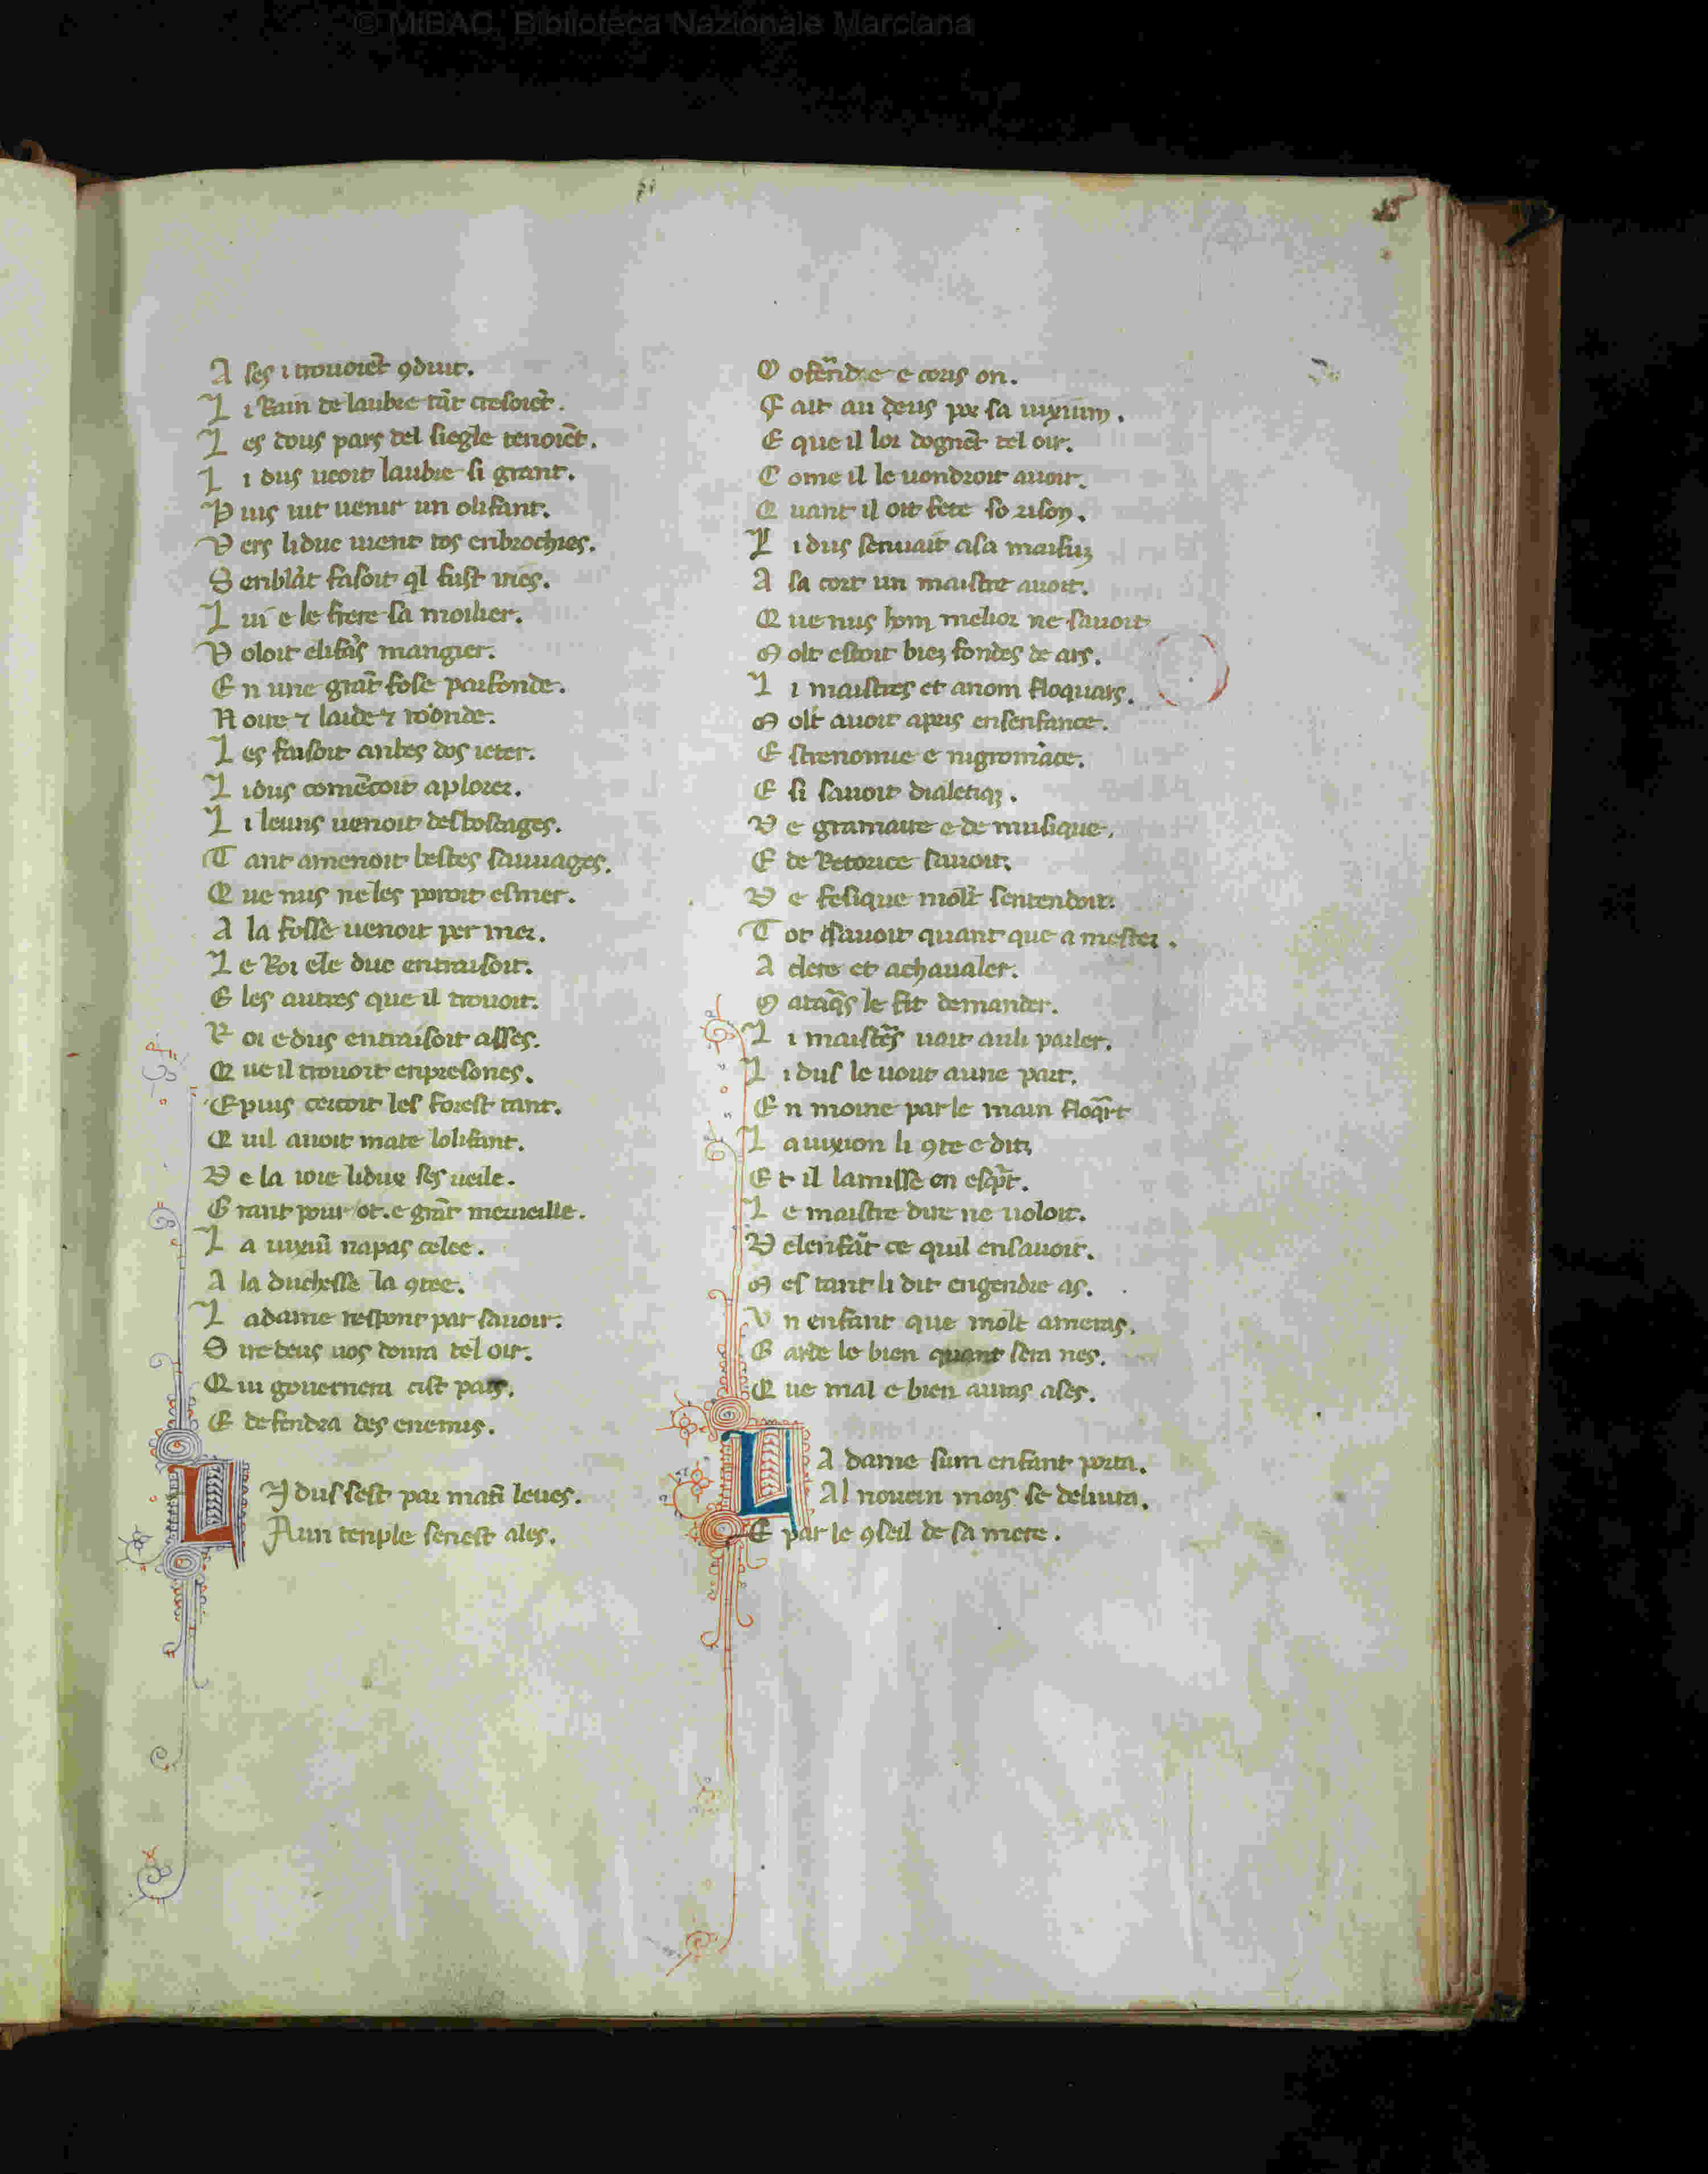 © MiBAC, Biblioteca Nazionale Marciana
A ses i trouoiẽt ꝯduit.
L i Rain de laubre tãt cresoiẽt.
L es dous pars del siegle tenoiẽt.
L i dus ueoit laubre si grant.
P uis uit uenir un olifant.
V ers li duc uient tos enbrochies.
S enblãt fasoit ql fust iries.
L ui e le frere sa moilier.
V oloit elifãs mangier.
E n une grãt fose parfonde.
N oire ⁊ laide ⁊ roõnde.
L es faisoit anbes dos ieter.
L idus comẽcoit a plorer.
L i leuns uenoit des boscages.
T ant amenoit bestes sauuages.
Q ue nus ne les poroit esmer.
A la fosse uenoit per mer.
L e Roi ele duc entraisoit.
E les autres que il trouoit.
R oi e dus entraisoit asses.
Q ue il trouoit enpresones.
E puis cercoit les forest tant.
Q uil auoit mate lolifant.
D e la ioie lidux ses ueile.
G rant pour ot. e grãt merueille.
L a uixiũ napas celee.
A la duchesse la ꝯtee.
L adame respont par sauoir.
S ire deus uos donra tel oir.
Q ui gouernera cist pais.
E defendra des enemis.
L I dus sest par matĩ leues.
A un tenple senest ales.
O ofẽrãdre e tous on.
F ait au deus por sa uixium.
E que il lor dognẽt tel oir.
C ome il le uondroit auoir.
Q uant il oit fete so rison.
L i dus senuait a sa maisuȝ
A sa cort un maistre auoit.
Q ue nus hom melior ne sauoit
M olt estoit bieȝ fondes de ars.
L i maistres et anom floquars.
M olt auoit apris ensenfance.
E strenomie e nigromãce.
E si sauoit dialetiqȝ.
D e gramatie e de musique.
E de Retorice sauoit.
D e fesique molt sentendoit.
T ot sauoit quant que a mestier.
A clerc et achaualer.
M ataq̃s le fit demander.
L i maistẽs uait auli parler.
L i dus le uout aune part.
E n moine par le main floq̃rt
L a uixion li ꝯte e ditȝ
E t il lamisse en esꝑ̃t.
L e maistre dire ne uoloit.
D elenfãt ce quil ensauoit.
M es tant li dit engendre as.
U n enfant que molt ameras.
G arde le bien quant sera nes.
Q ue mal e bien auras ases.
L A dame sum enfant porta.
Al nouein mois se deliura.
E par le ꝯseil de sa mere.